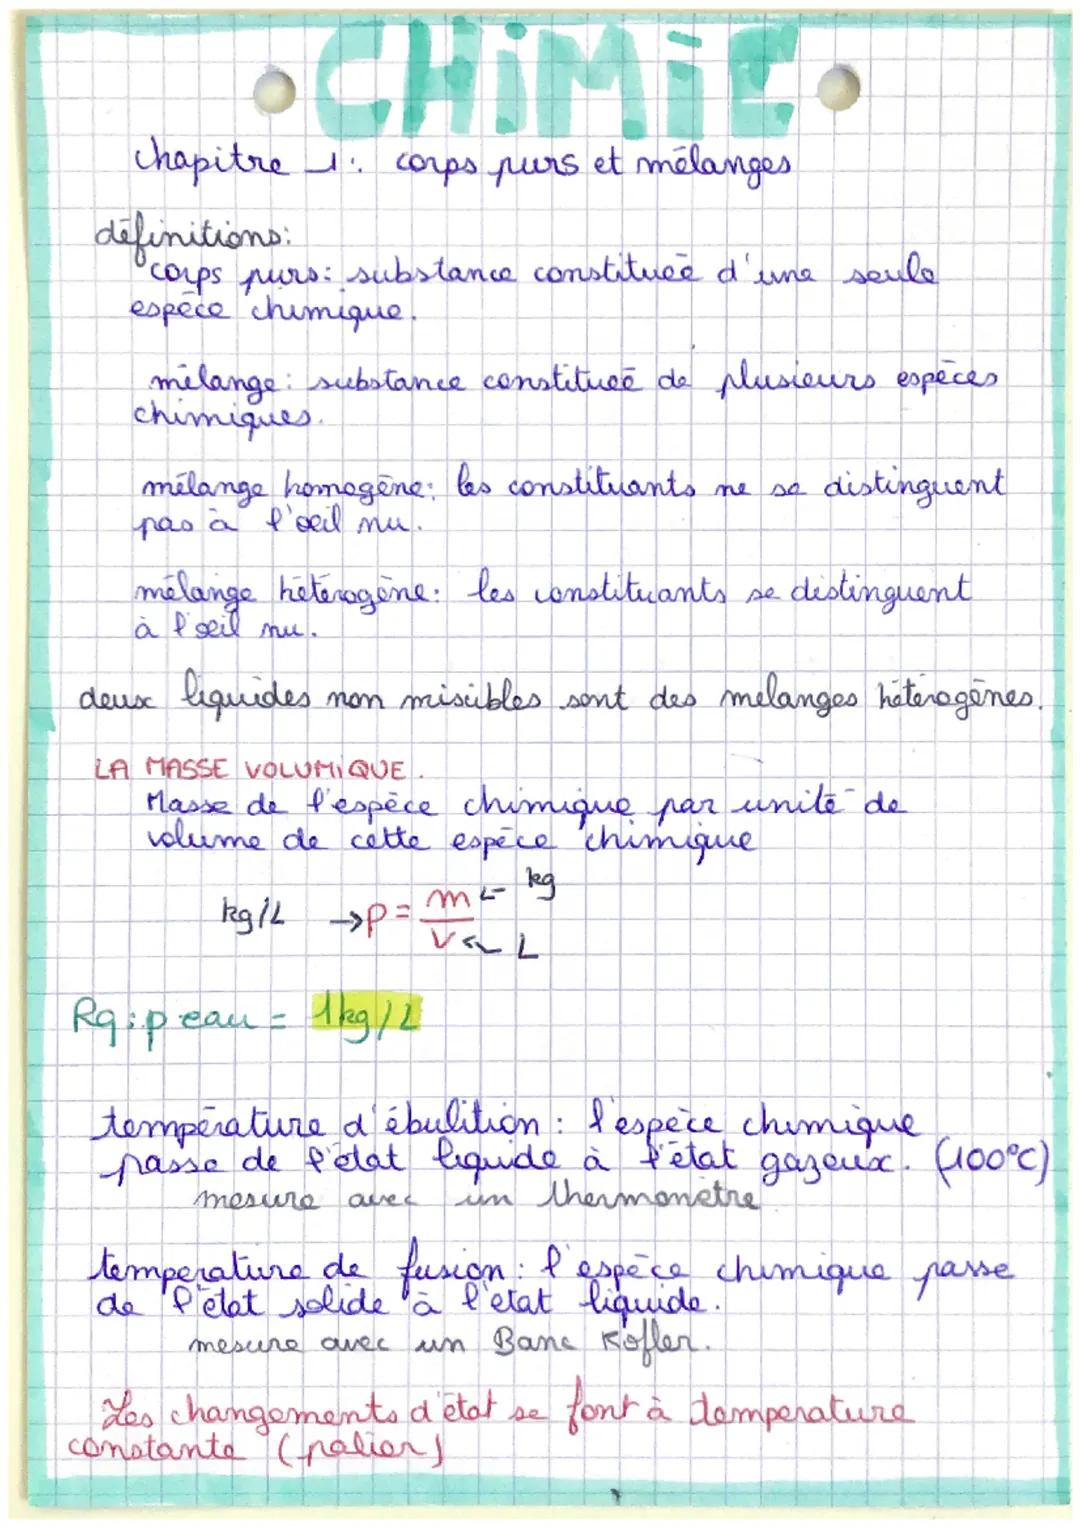 CHiMiE
chapitre 1: corps purs et mélanges
définitions:
corps purs: substance constituée d'une seule
espèce chimique.
mélange: substance constituée de plusieurs espèces
chimiques.
mélange homogène: les constituants ne se distinguent
pas à l'oeil nu.
mélange hétérogène: les constituants se distinguent
à l'oeil nu.
deux liquides non miscibles sont des melanges hétérogènes.
LA MASSE VOLUMiQUE.
Masse de l'espèce chimique par unité de
volume de cette espèce chimique
kg/L → ρ = m/V ← kg
← L
Rq: ρ eau = 1kg/L
température d'ébulition: l'espèce chimique
passe de l'état liquide à l'état gazeux. (100°C)
mesure avec un thermomètre
temperature de fusion: l'espèce chimique passe
de l'état solide à l'état liquide.
mesure avec un Banc Kofler.
Les changements d'état se font à température
constante (palier)